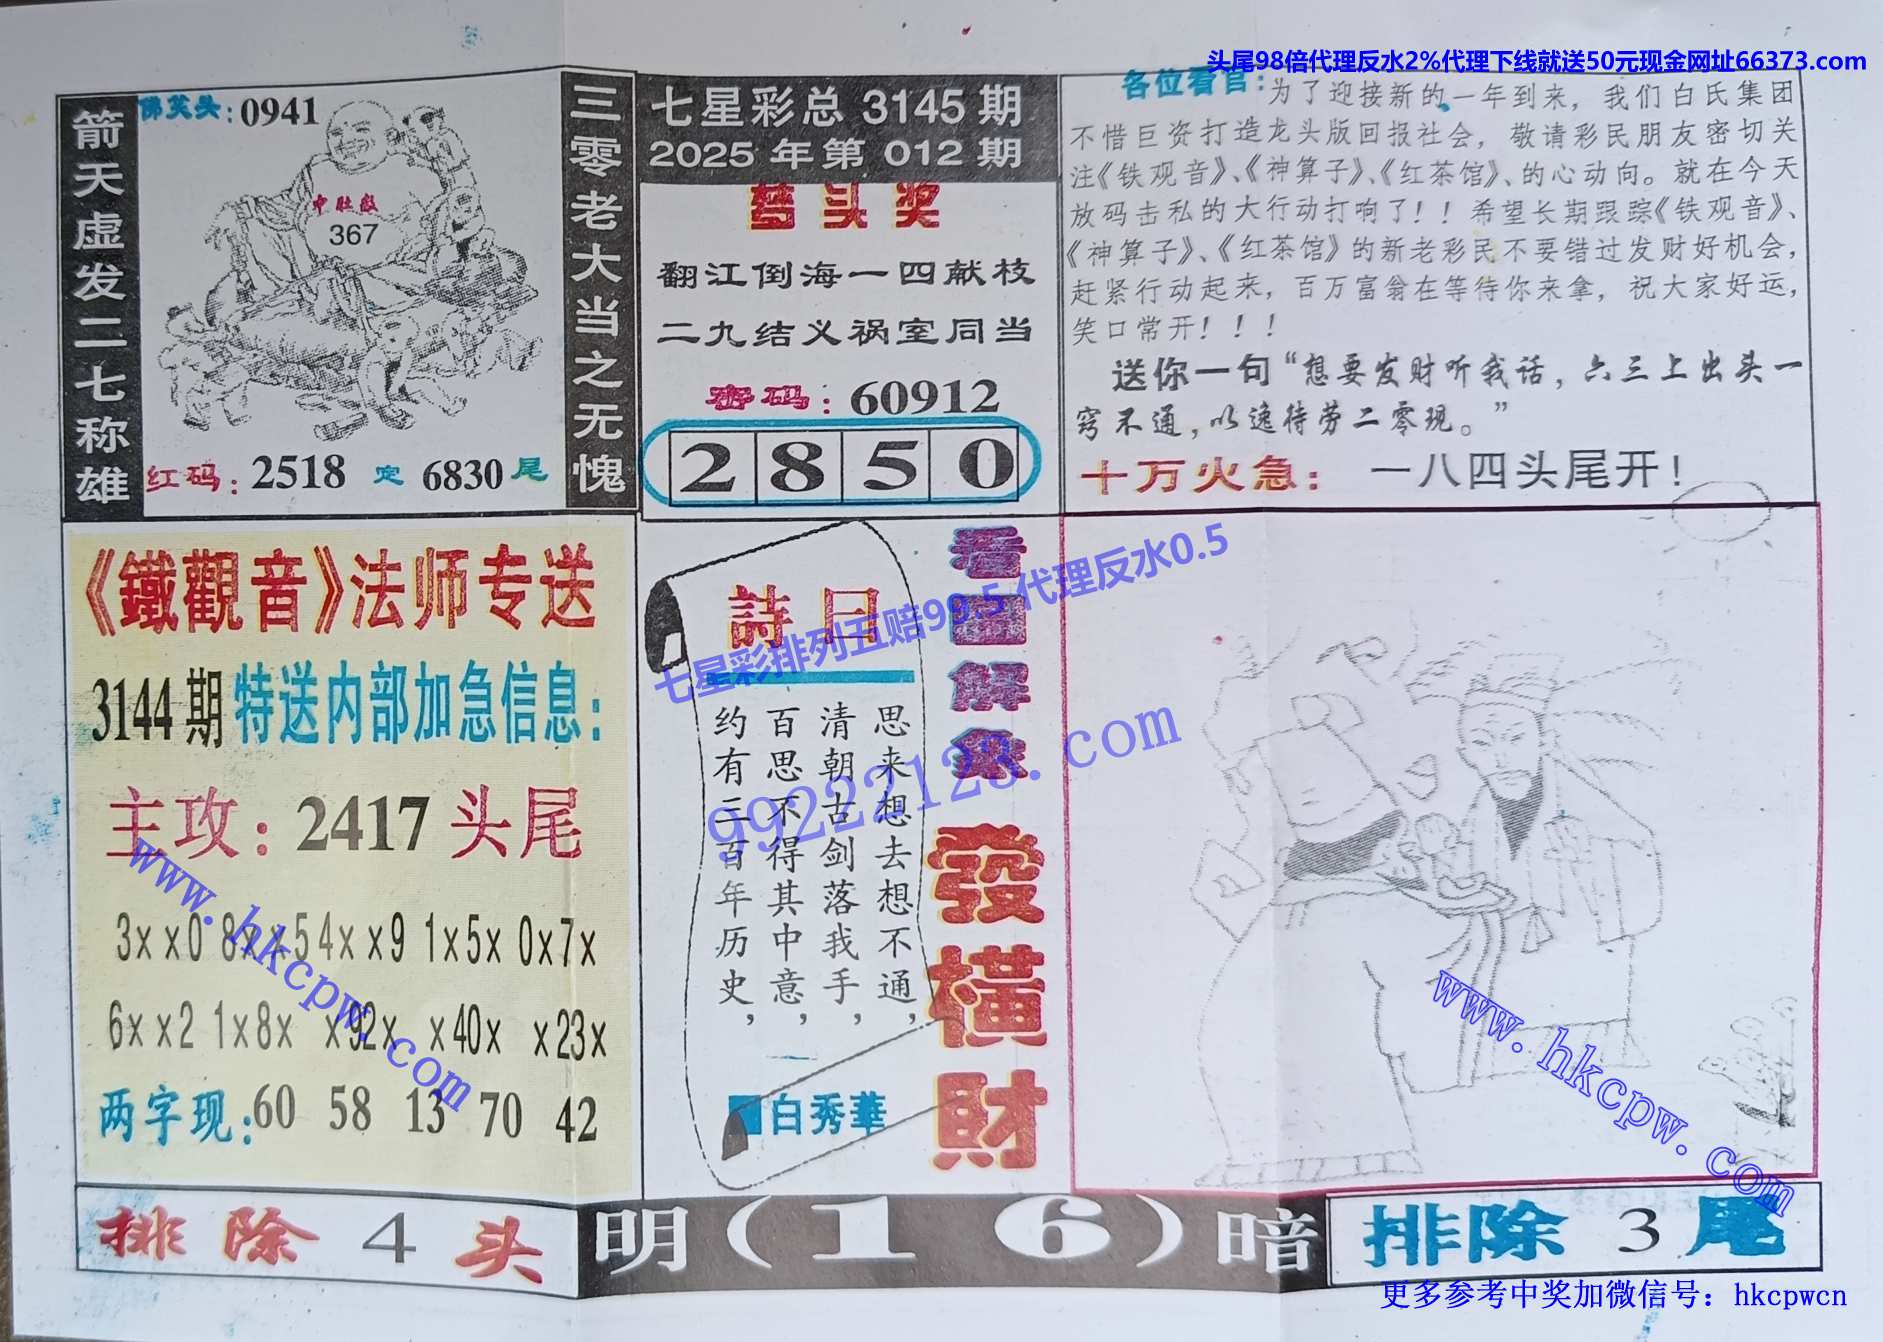 头尾98倍代理反水2%代理下线就送50元现金网址66373.com
箭天虚发二七称雄
佛关头:0941
中肚数
367
红码:2518 定 6830尾
三零老大当之无愧
七星彩总 3145 期
2025 年第 012 期
梦头奖
翻江倒海一四献枝
二九结义祸室同当
密码:60912
2850
各位看官:为了迎接新的一年到来，我们白氏集团
不惜巨资打造龙头版回报社会，敬请彩民朋友密切关
注《铁观音》、《神算子》、《红茶馆》、的心动向。就在今天
放码击私的大行动打响了！！希望长期跟踪《铁观音》、
《神算子》、《红茶馆》的新老彩民不要错过发财好机会，
赶紧行动起来，百万富翁在等待你来拿，祝大家好运，
笑口常开！！！
送你一句“想要发财听我话，六三上出头一
窍不通，以逸待劳二零现。”
十万火急：一八四头尾开！
《鐵觀音》法师专送
3144期特送内部加急信息：
主攻：2417头尾
3××0 8××5 4××9 1×5× 0×7×
6××2 1×8× ×92× ×40× ×23×
两字现:60 58 13 70 42
詩曰
思来想去想不通，
清朝古剑落我手，
百思不得其中意，
约有二百年历史，
白秀華
看圖解象
發横財
七星彩排列五赔99.5 代理反水0.5
99222123.com
www.hkcpw.com
www.hkcpw.com
排除 4 头
明(16)暗
排除 3 尾
更多参考中奖加微信号：hkcpwcn